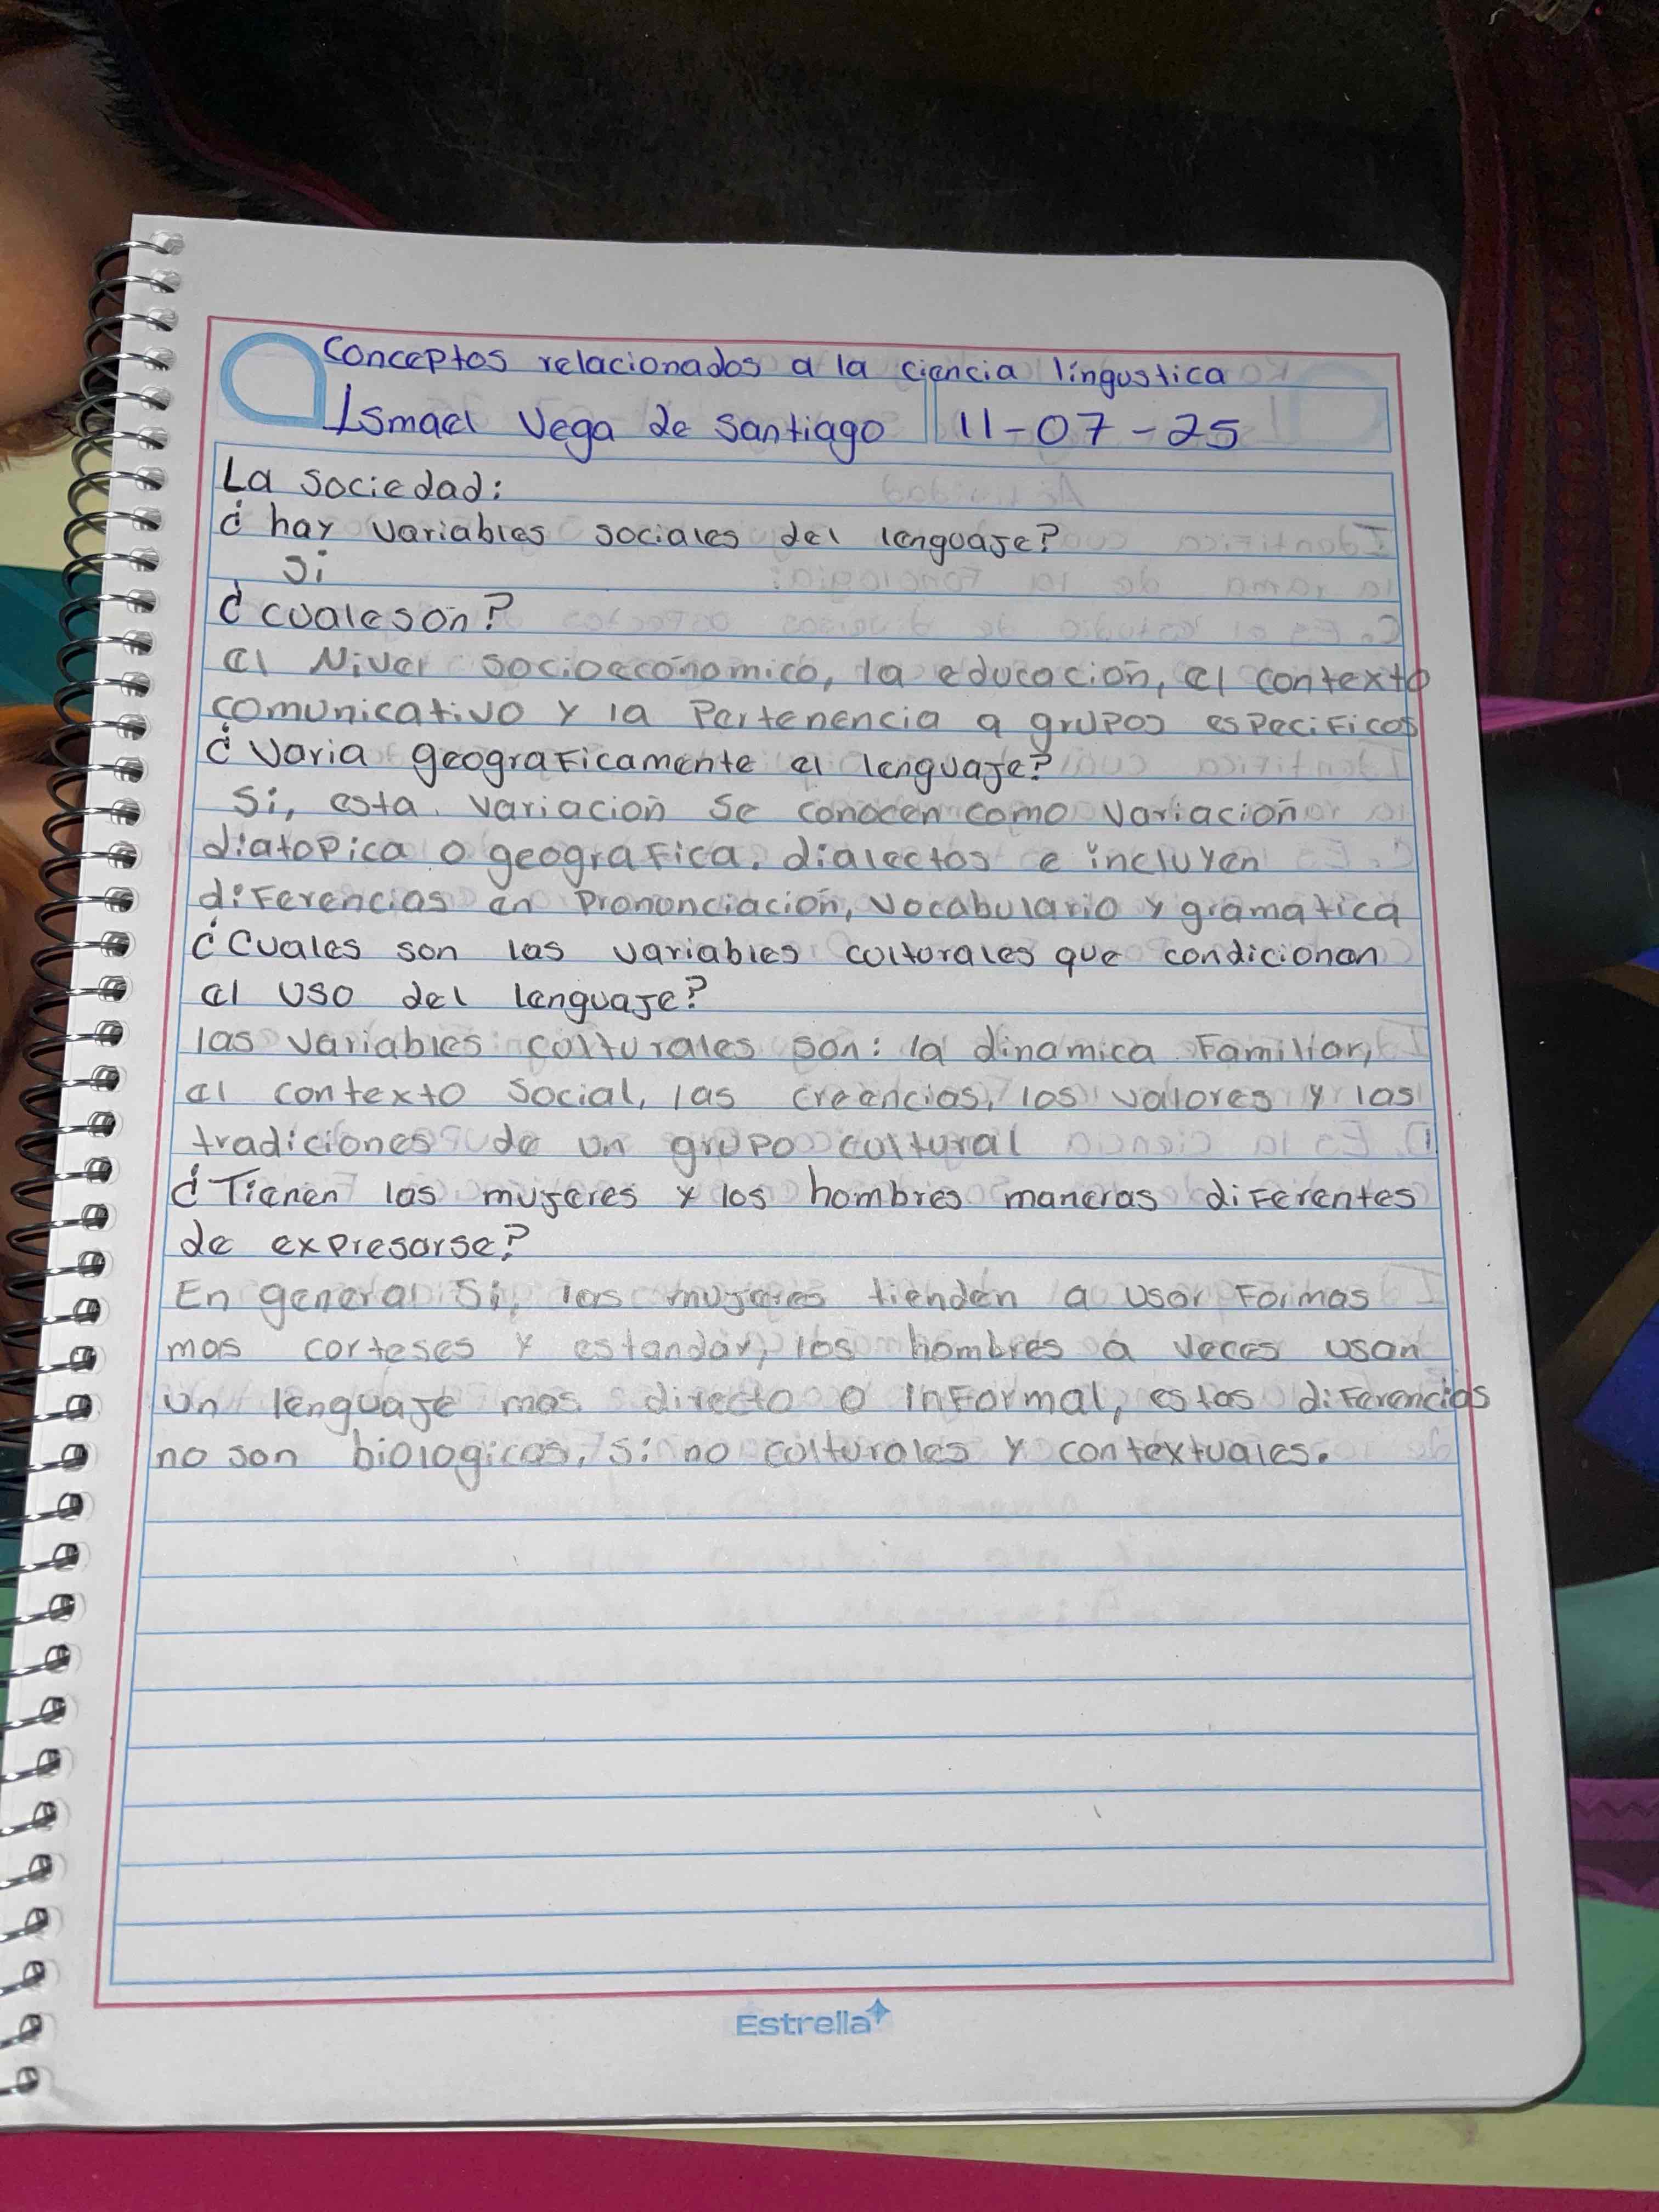 Conceptos relacionados a la ciencia lingustica
Ismael Vega de Santiago 11-07-25
La sociedad:
¿hay variables sociales del lenguaje?
Si
¿cualeson?
el Nivel socioeconomico, la educación, el contexto
comunicativo y la Pertenencia a grupos especificos
¿varia geograficamente el lenguaje?
Si, esta variación se conocen como variación
diatopica o geografica. dialectos e incluyen
diferencias en pronunciación, vocabulario y gramatica
¿Cuales son las variables culturales que condicionan
el uso del lenguaje?
las variables culturales son: la dinamica Familiar,
el contexto Social, las creencias, los valores y las
tradiciones de un grupo cultural
¿Tienen las mujeres y los hombres maneras diferentes
de expresarse?
En general Si, las mujeres tienden a usar Formas
mas corteses y estandar, los hombres a veces usan
un lenguaje mas directo o informal, estas diferencias
no son biologicas, si no culturales y contextuales.
Estrella